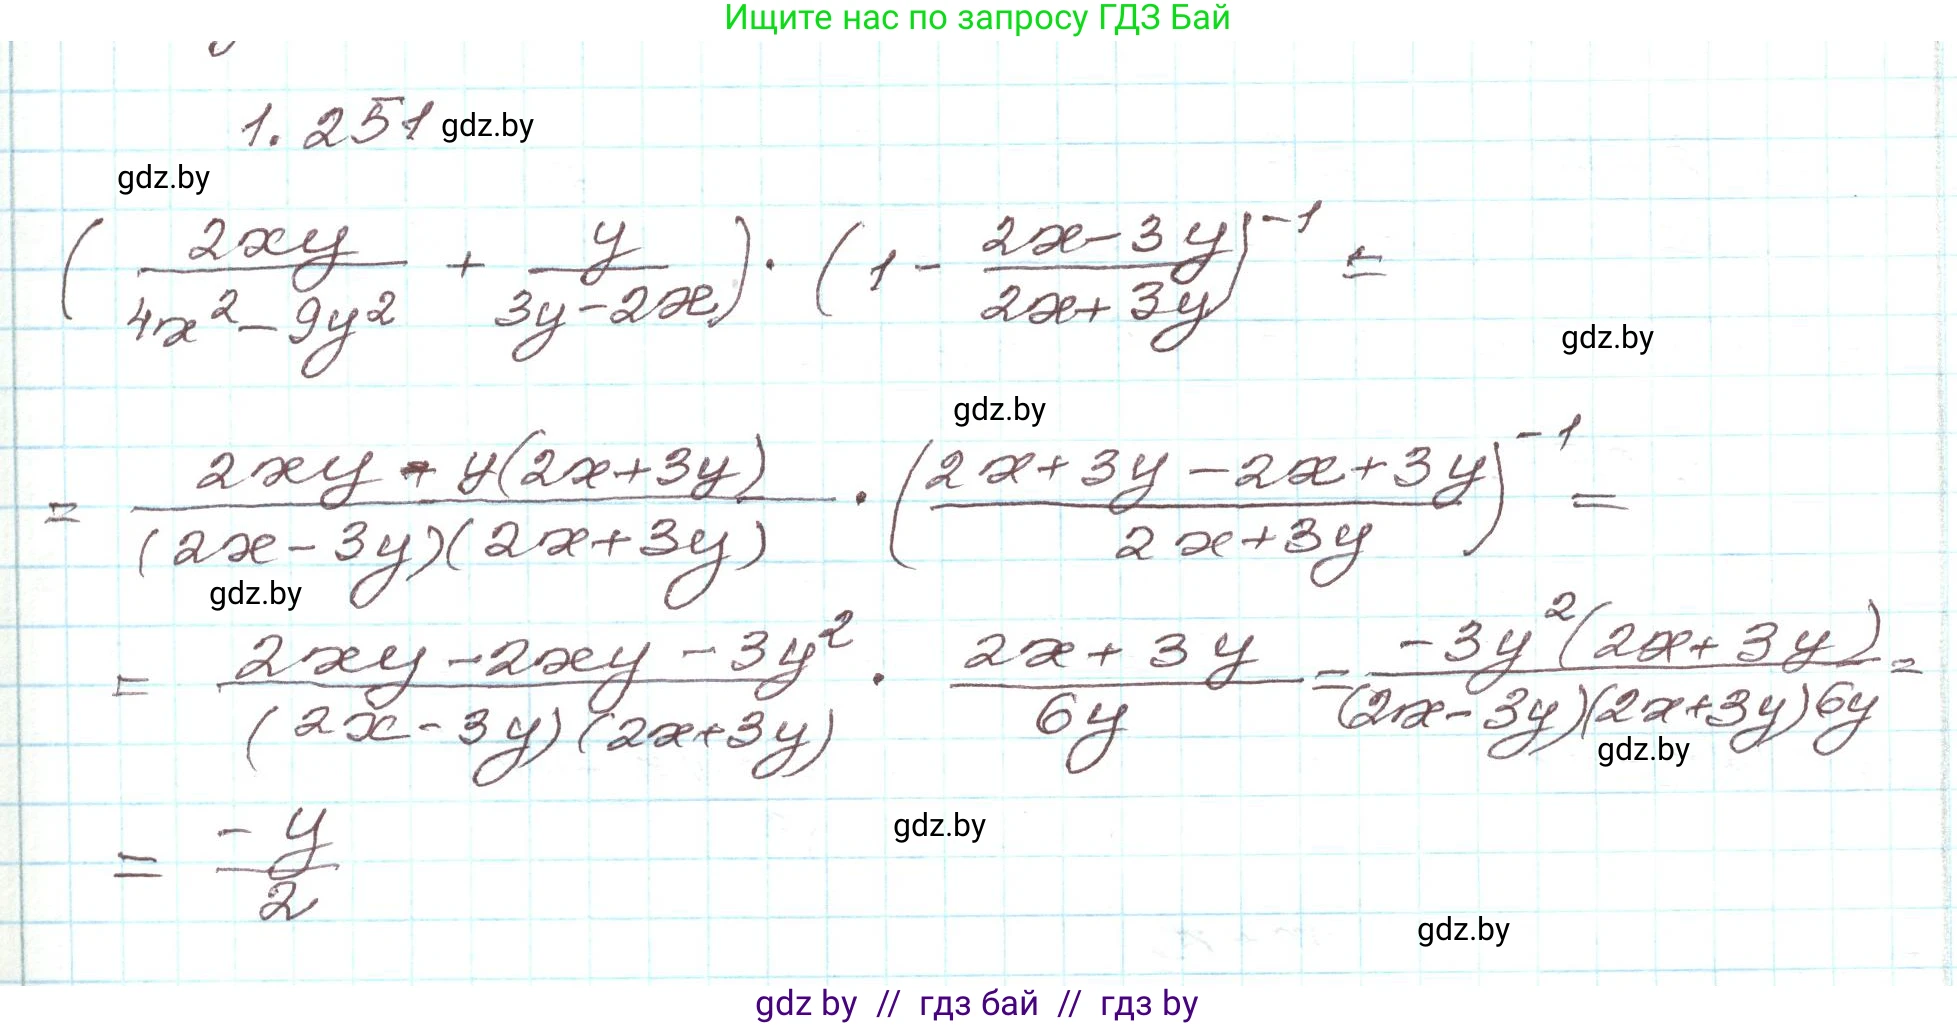 Ищите нас по запросу ГДЗ Бай
1.251 gdz.by
gdz.by
(2xy/(4x² - 9y²) + y/(3y - 2x)) · (1 - (2x - 3y)/(2x + 3y))⁻¹ =
gdz.by
gdz.by
= (2xy - y(2x + 3y))/((2x - 3y)(2x + 3y)) · ((2x + 3y - 2x + 3y)/(2x + 3y))⁻¹ =
gdz.by
= (2xy - 2xy - 3y²)/((2x - 3y)(2x + 3y)) · (2x + 3y)/(6y) = (-3y²(2x + 3y))/((2x - 3y)(2x + 3y)6y) =
gdz.by
gdz.by
= -y/2
gdz.by
gdz by // гдз бай // гдз by